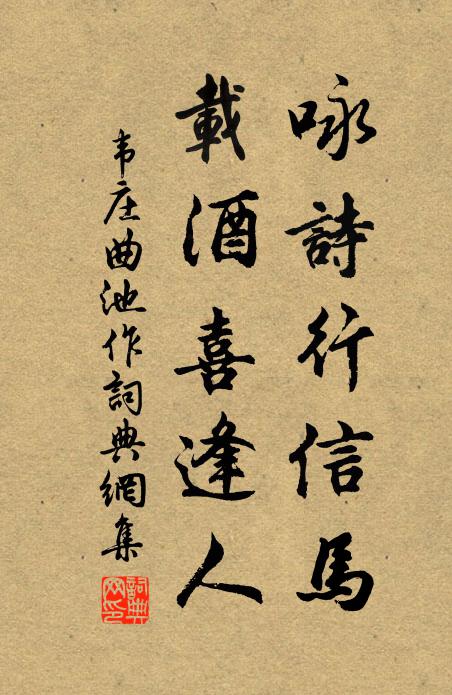 咏詩行信馬
載酒喜逢人
韦庄曲池作詞典網集
詞典网印